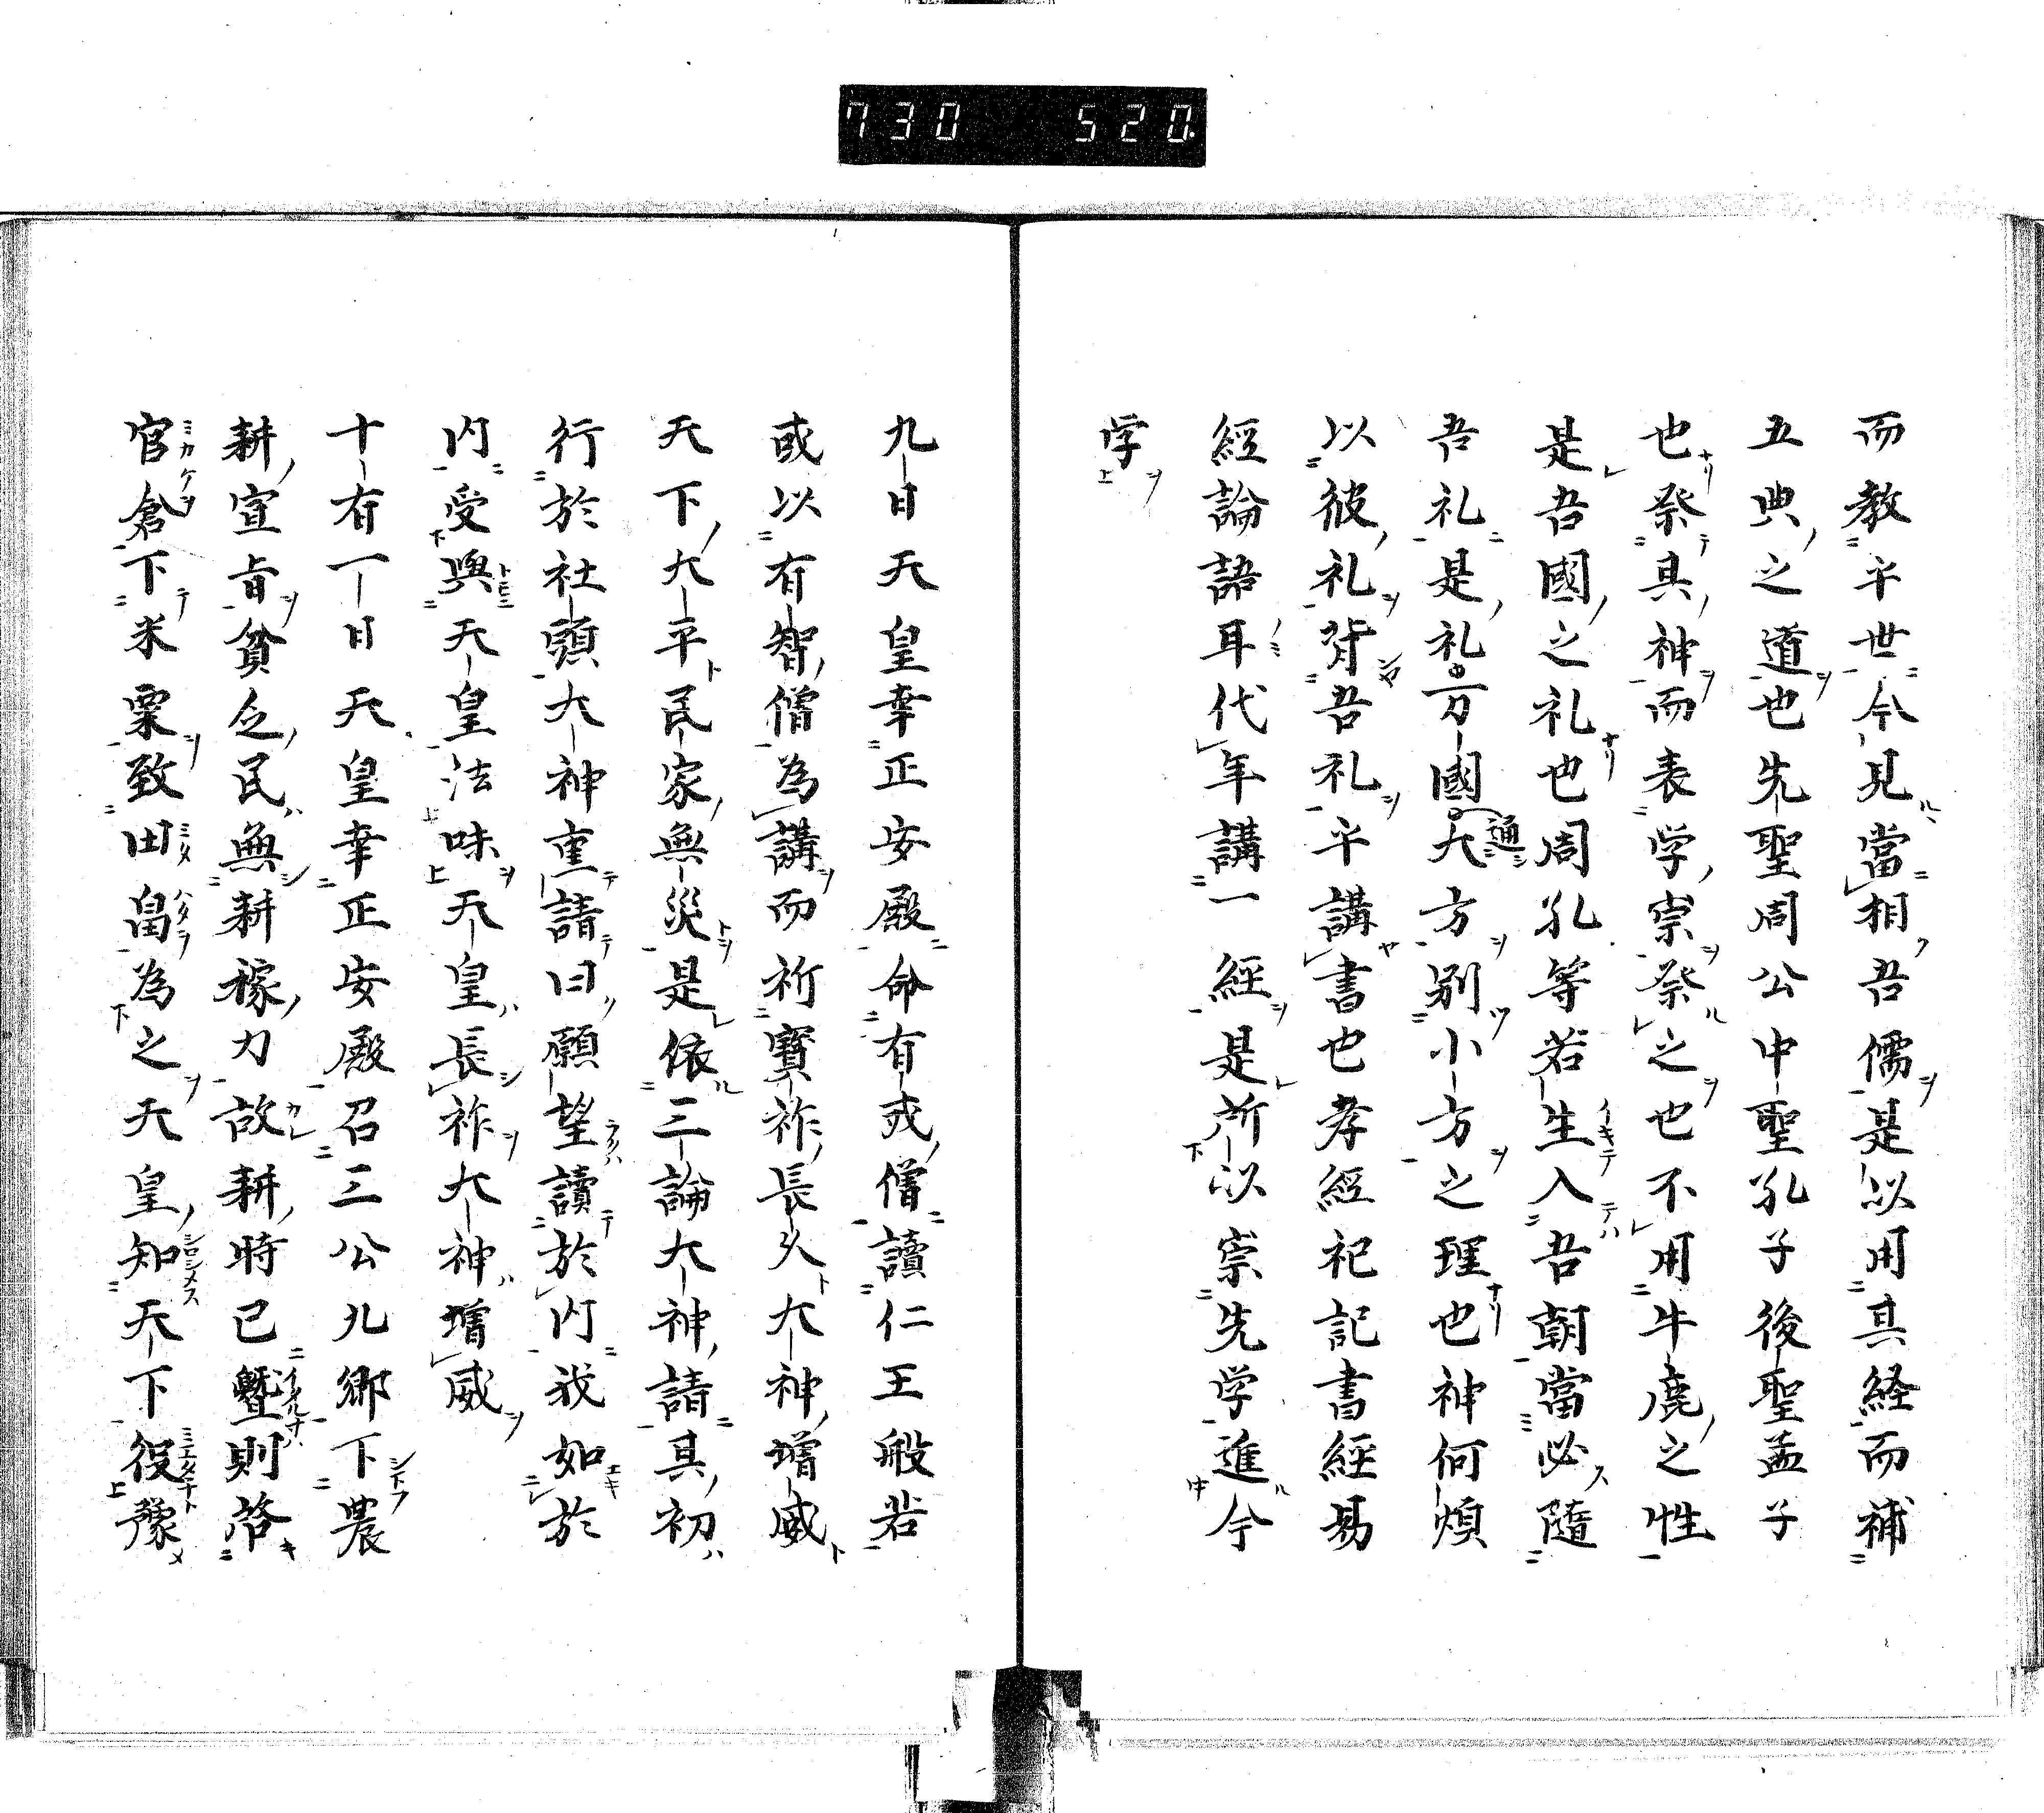 730 520.
而教乎世今見當相吾儒是以用其経而補
五典之道也先聖周公中聖孔子後聖孟子
也祭具神而表学宗祭之也不用牛鹿之性
是吾國之礼也周孔等若生入吾朝當必隨
吾礼是礼方國通大方別小方之理也神何煩
以彼礼背吾礼乎講書也孝經祀記書經易
經論語耳代年講一經是所以崇先学進今
学
九日天皇幸正安殿命有戒僧讀仁王般若
或以有智僧為講而祈寶祚長久大神増威
天下大平民家無災是依三論大神請其初
行於社頭大神重請曰願望讀於内我如於
内受與天皇法味天皇長祚大神増威
十有一日天皇幸正安殿召三公九卿下農
耕宣旨貧乏民無耕稼力故耕時已曁則啓
官倉下米粟致田畠為之天皇知天下役豫